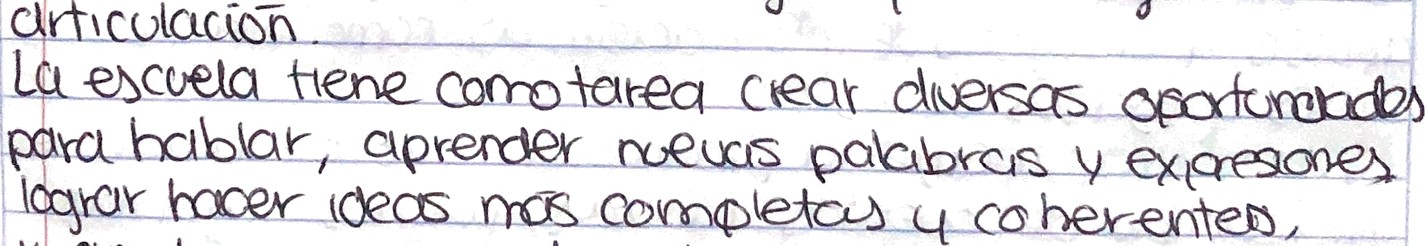 articulación.
La escuela tiene como tarea crear diversas oportunidades
para hablar, aprender nuevas palabras y expresiones,
lograr hacer ideas más completas y coherentes,